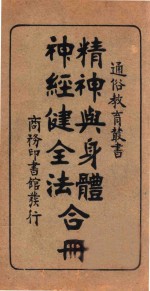 通俗教育叢書
精神與身體
神經健全法
合冊
商務印書館發行